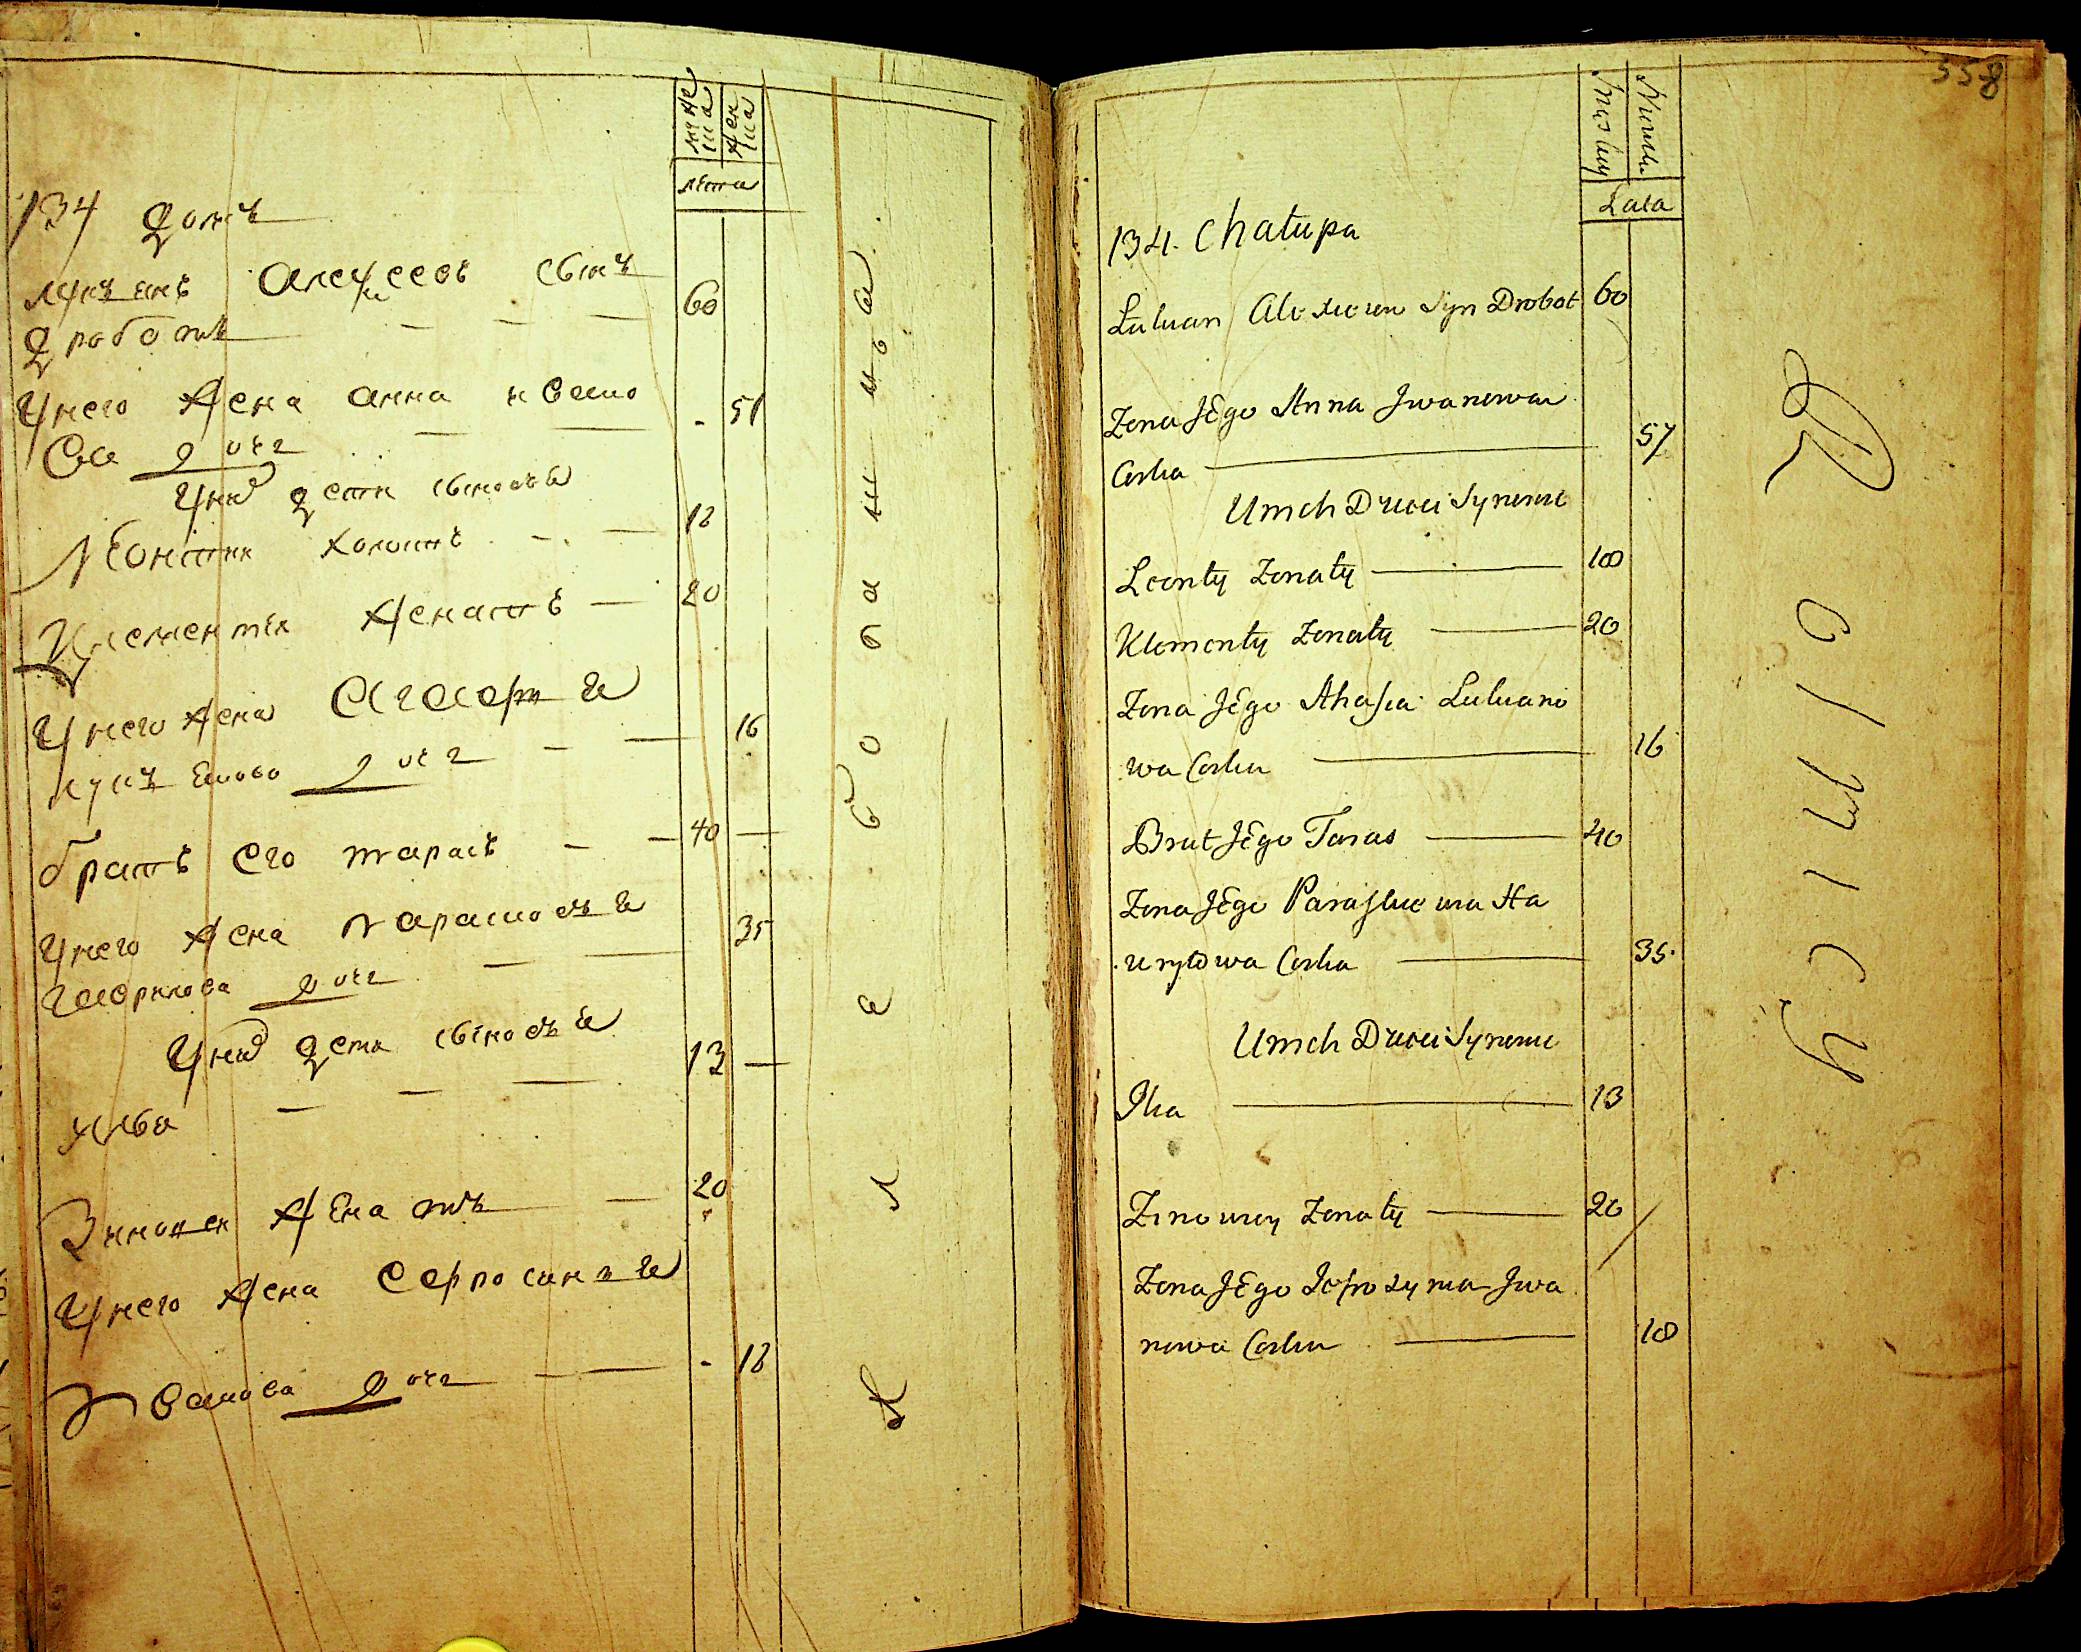 мужеска
женска
лета
134 домъ
лукъянъ алексеевъ сынъ
дработъ 60
унего жена анна ивано
ва доч 51
уних дети сыновья
леонтии холостъ 18
клементеи женатъ 20
унего жена агафия
лукъянова доч 16
братъ его тарасъ 40
унего жена парасковья
гаврилова доч 35
уних дети сыновья
илья 13
зиновеи женатъ 20
унего жена ефросиния
иванова доч 18
558
Męskiey
Lata
134. Chałupa
Lukian Alexieiew Syn Drobot 60
Zona Jego Anna Jwanowa
Corka 57
U nich Dzieci Synowie
Leonty Zonaty 18
Klementy Zonaty 20
Zona Jego Ahafia Lukiano
wa Corka 16
Brat Jego Taras 40
Zona Jego Paraskiewia Ha
wryłowa Corka 35.
U nich Dzieci Synowie
Jlia 13
Zinowiey Zonaty 20
Zona Jego Jefrozynia Jwa
nowa Corka 18